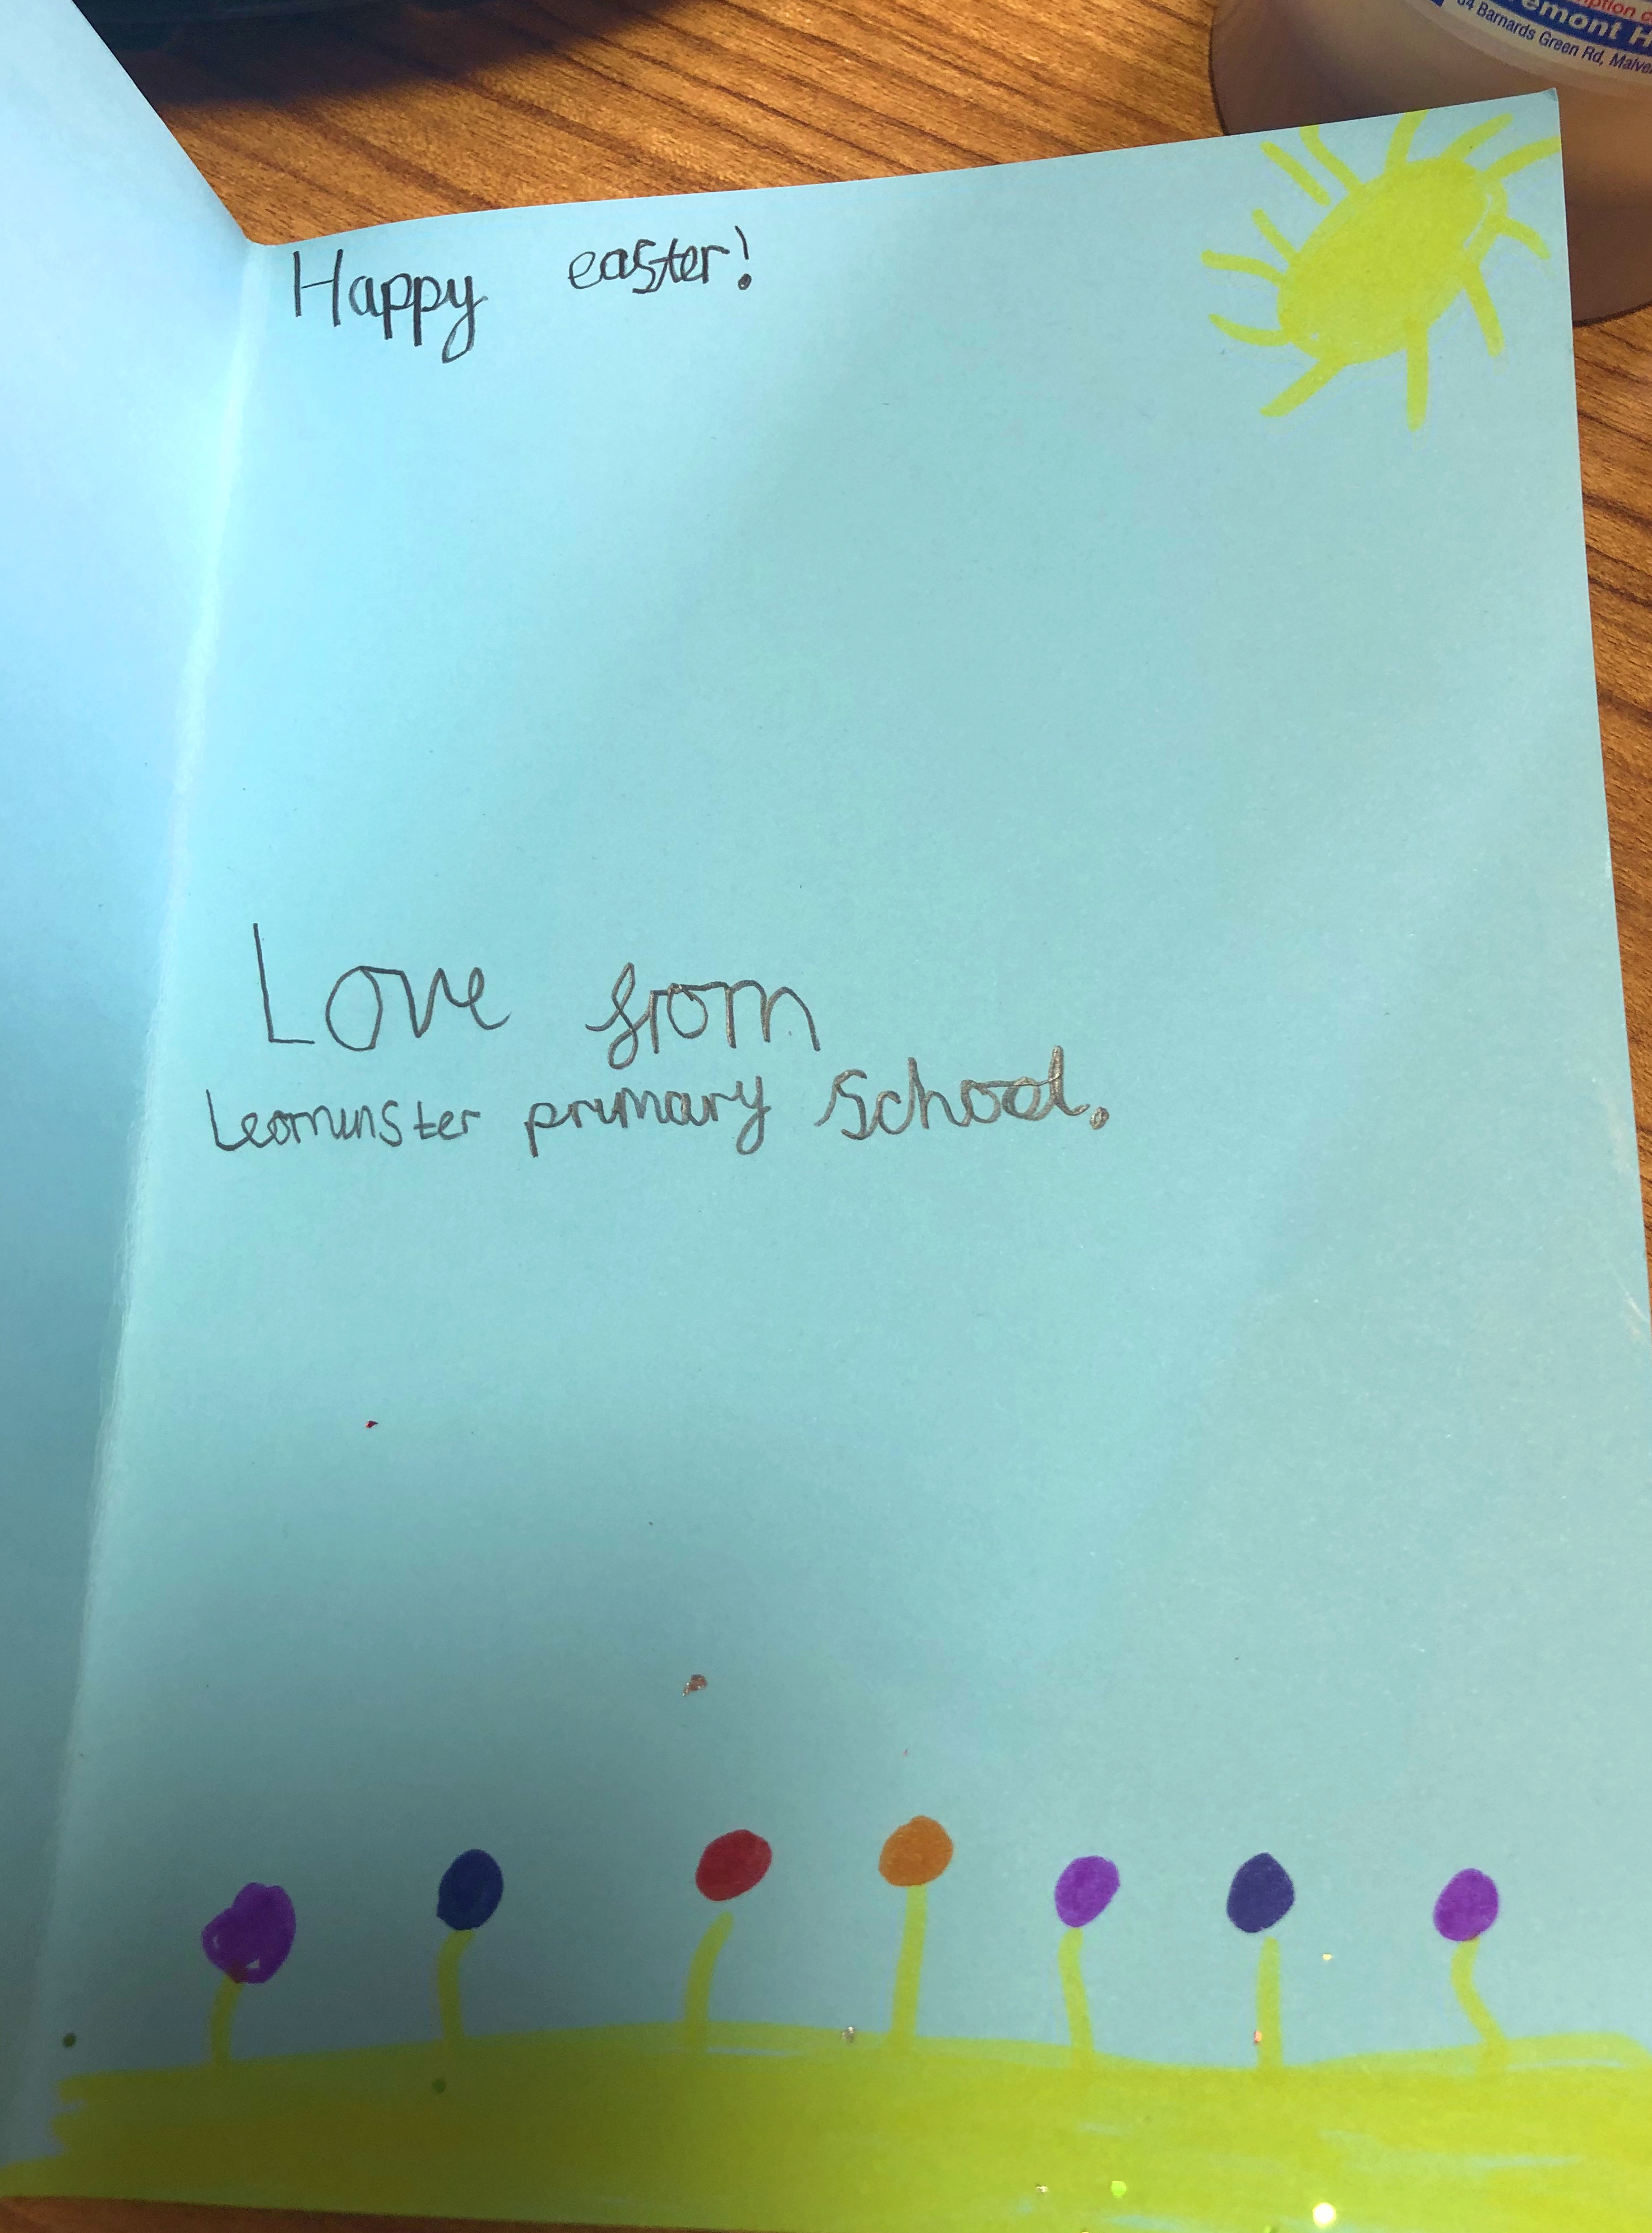 84 Barnards Green Rd, Malve
Happy easter!
Love from
Leominster primary School.